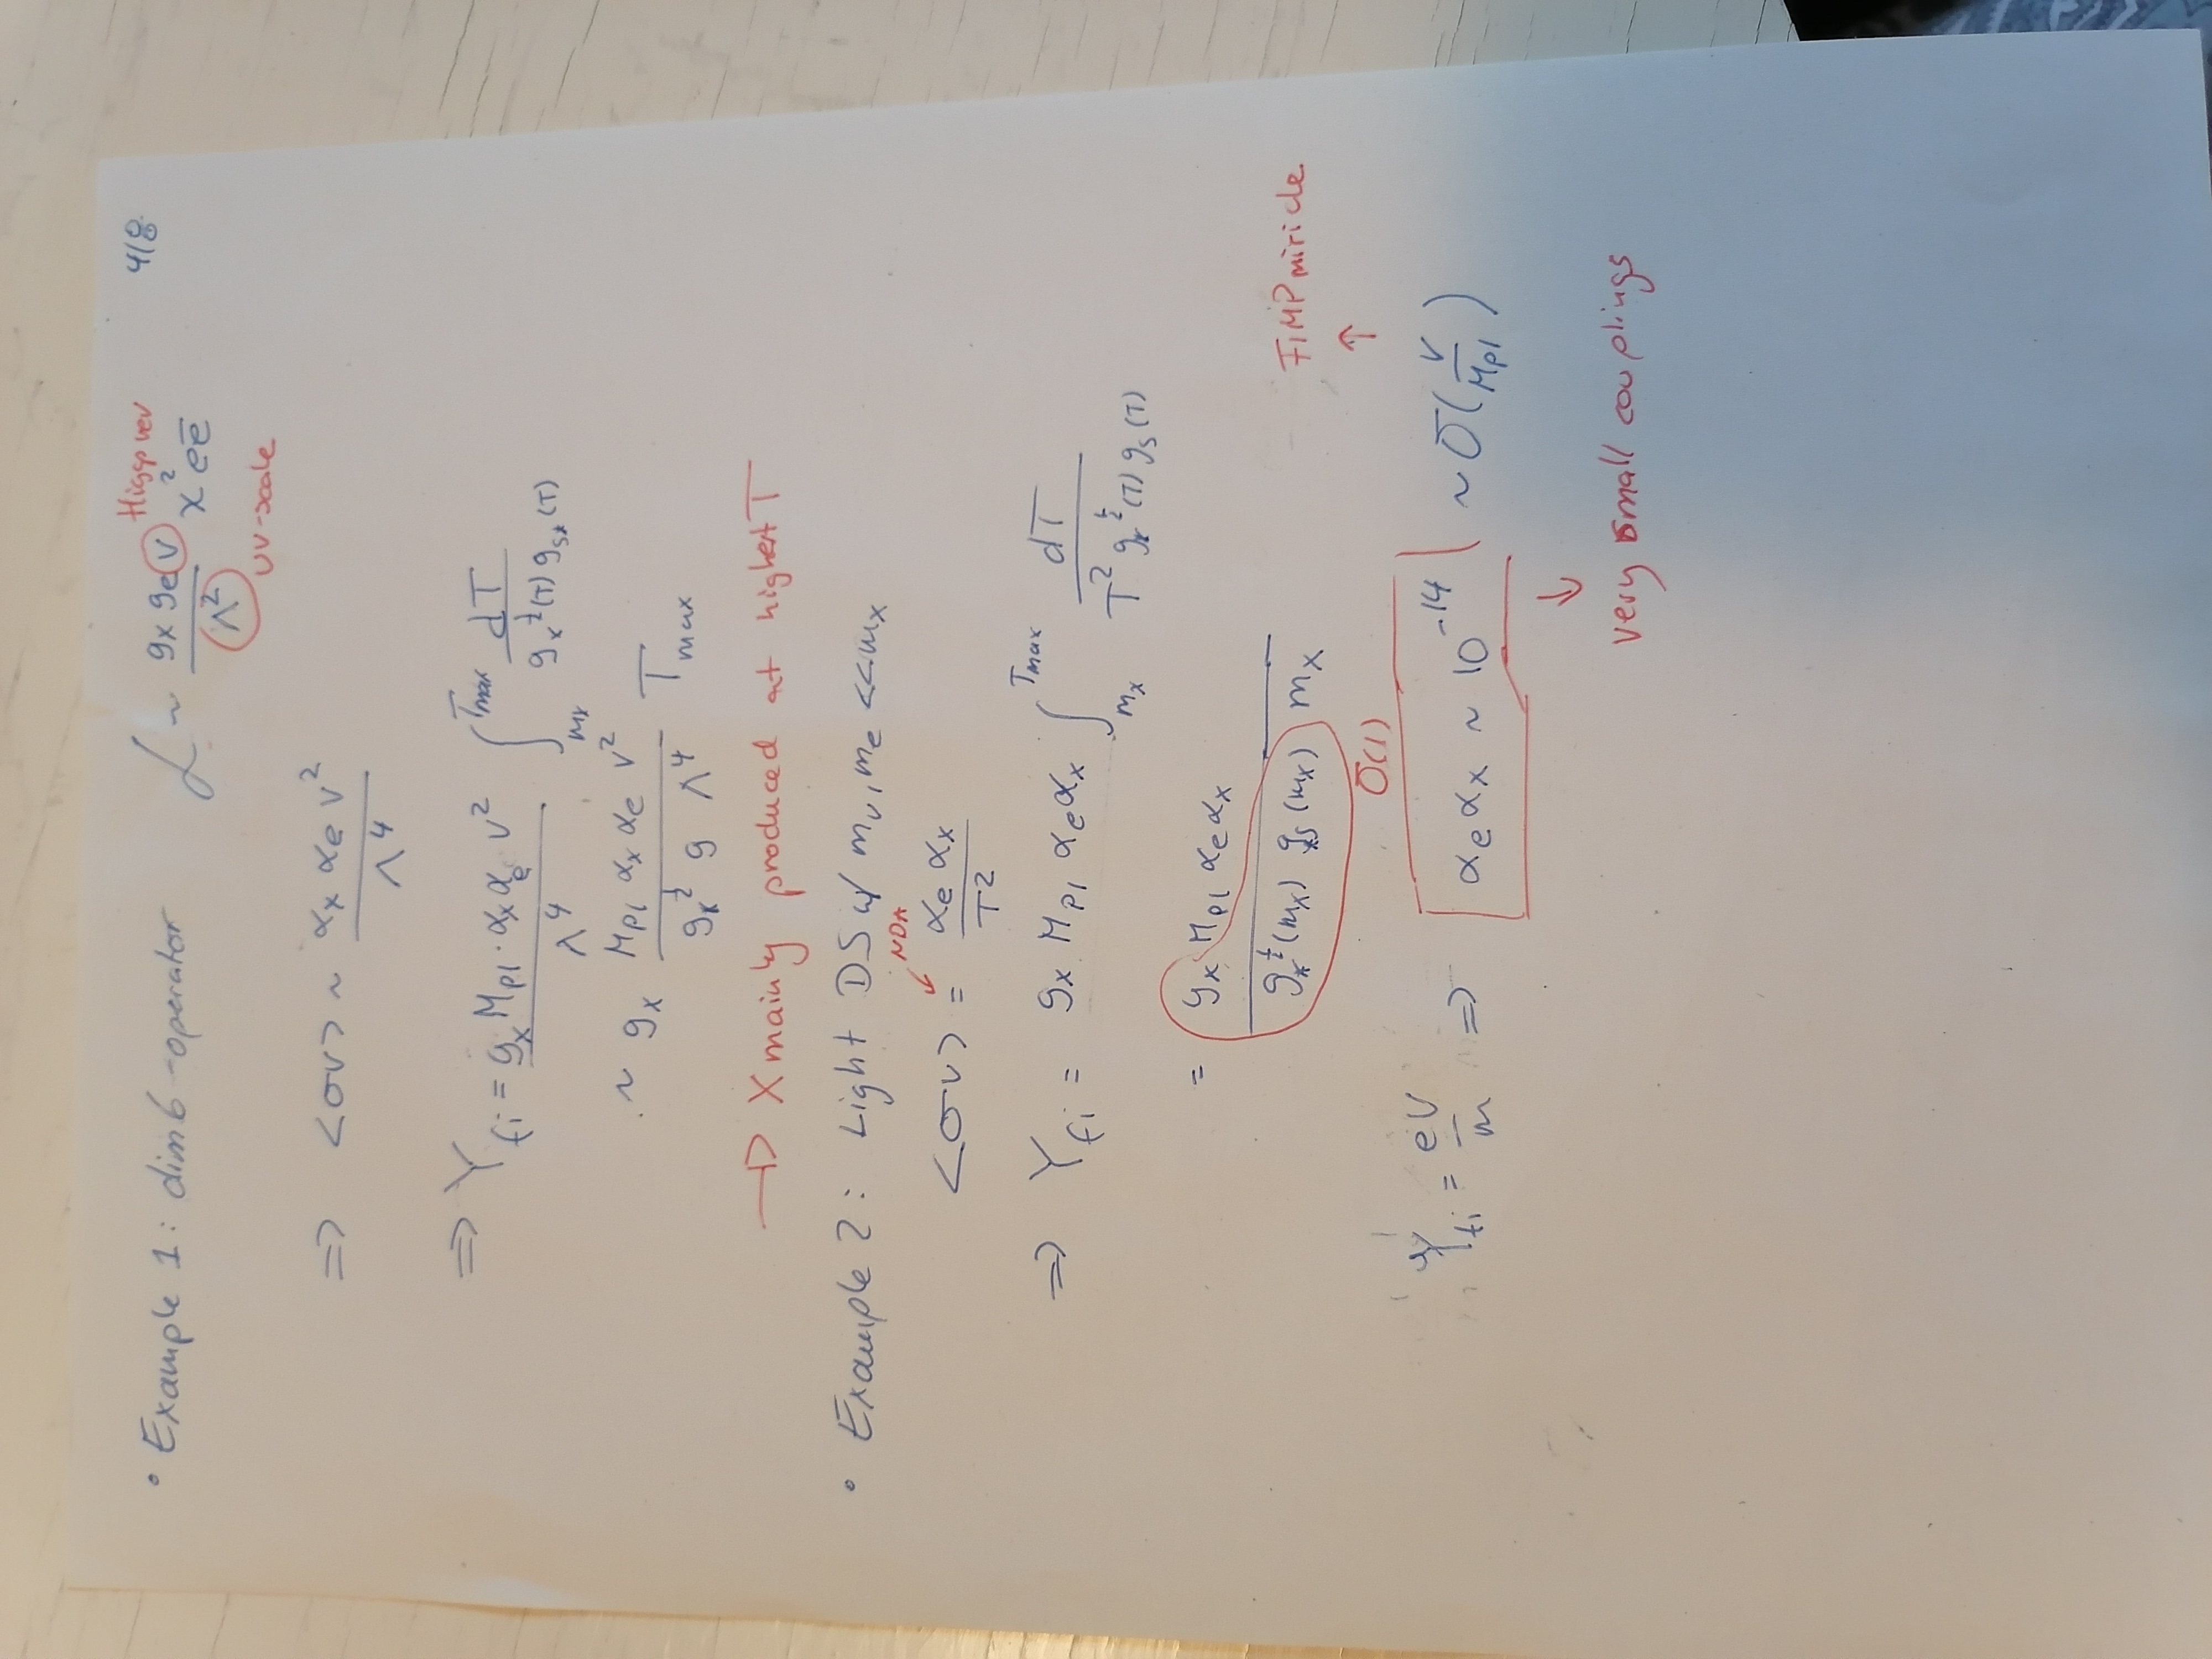 4/8
• Example 1: dim 6-operator ℒ ~ gx ge v / Λ² x² e ē
Higgs vev
UV-scale
=> <σv> ~ αx αe v² / Λ⁴
=> Yfi = gx MPl · αx αe v² / Λ⁴ ∫_mx^Tmax dT / g*^½(T) gs*(T)
~ gx MPl αx αe v² / g*^½ g Λ⁴ Tmax
→ X mainly produced at highest T
• Example 2: Light DS w/ mv, me << mx
NDA
<σv> = αe αx / T²
=> Yfi = gx MPl αe αx ∫_mx^Tmax dT / T² g*^½(T) gs(T)
= gx MPl αe αx / g*^½(mx) g*s(mx) mx
O(1)
FIMP miricle
↑
Yfi = eV / m => αe αx ~ 10⁻¹⁴ ~ O(v / MPl)
↓
very small couplings